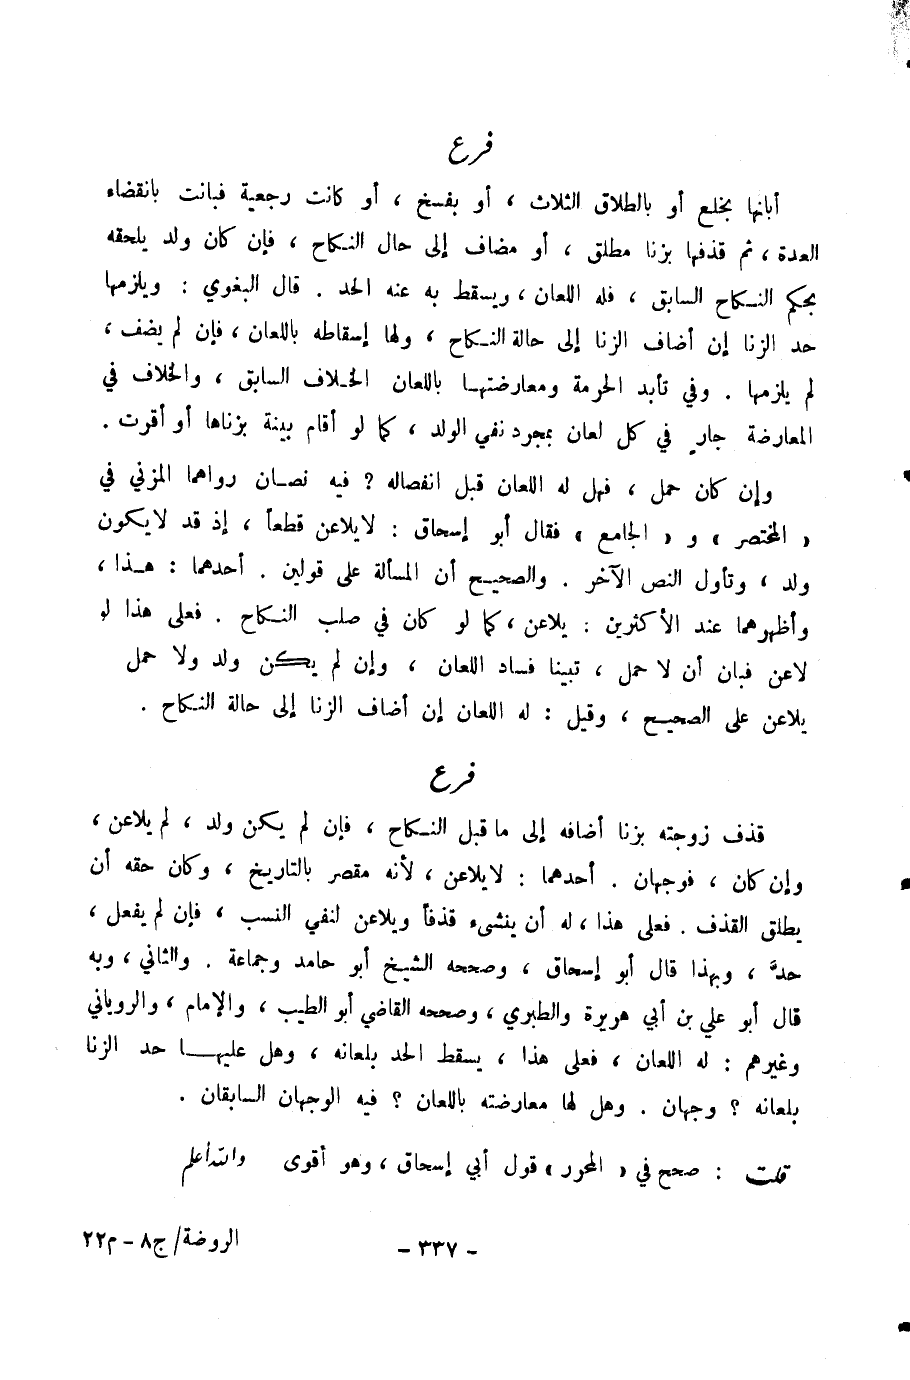 فرع
أبانها بخلع أو بالطلاق الثلاث ، أو بفسخ ، أو كانت رجعية فبانت بانقضاء
العدة ، ثم قذفها بزنا مطلق ، أو مضاف إلى حال النكاح ، فإن كان ولد يلحقه
بحكم النكاح السابق ، فله اللعان ، ويسقط به عنه الحد . قال البغوي : ويلزمها
حد الزنا إن أضاف الزنا إلى حالة النكاح ، ولها إسقاطه باللعان ، فإن لم يضف ،
لم يلزمها . وفي تأبد الحرمة ومعارضتها باللعان الخلاف السابق ، والخلاف في
المعارضة جارٍ في كل لعان بمجرد نفي الولد ، كما لو أقام بينة بزناها أو أقرت .
وإن كان حمل ، فهل له اللعان قبل انفصاله ؟ فيه نصان رواهما المزني في
« المختصر » و « الجامع » فقال أبو إسحاق : لا يلاعن قطعاً ، إذ قد لا يكون
ولد ، وتأول النص الآخر . والصحيح أن المسألة على قولين . أحدهما : هذا ،
وأظهرهما عند الأكثرين : يلاعن ، كما لو كان في صلب النكاح . فعلى هذا لو
لاعن فبان أن لا حمل ، تبينا فساد اللعان ، وإن لم يكن ولد ولا حمل
يلاعن على الصحيح ، وقيل : له اللعان إن أضاف الزنا إلى حالة النكاح .
فرع
قذف زوجته بزنا أضافه إلى ما قبل النكاح ، فإن لم يكن ولد ، لم يلاعن ،
وإن كان ، فوجهان . أحدهما : لا يلاعن ، لأنه مقصر بالتاريخ ، وكان حقه أن
يطلق القذف . فعلى هذا ، له أن ينشىء قذفاً ويلاعن لنفي النسب ، فإن لم يفعل ،
حدَّ ، وبهذا قال أبو إسحاق ، وصححه الشيخ أبو حامد وجماعة . والثاني ، وبه
قال أبو علي بن أبي هريرة والطبري ، وصححه القاضي أبو الطيب ، والإمام ، والروياني
وغيرهم : له اللعان ، فعلى هذا ، يسقط الحد بلعانه ، وهل عليها حد الزنا
بلعانه ؟ وجهان . وهل لها معارضته باللعان ؟ فيه الوجهان السابقان .
قلت : صحح في « المحرر » قول أبي إسحاق ، وهو أقوى والله أعلم
- ٣٣٧ -
الروضة/ ج٨ - م٢٢